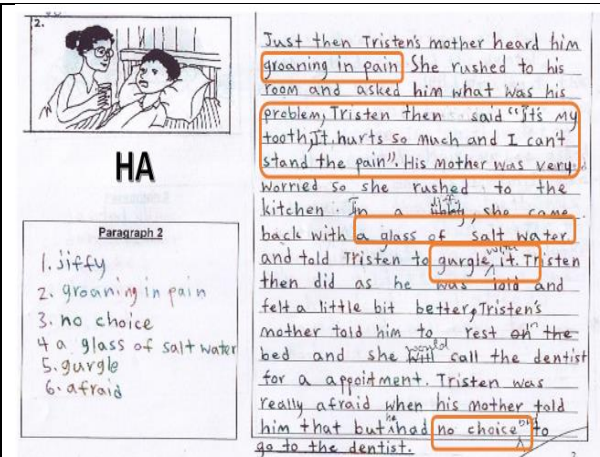 2.
HA
Paragraph 2
1. jiffy
2. groaning in pain
3. no choice
4 a glass of salt water
5. gurgle
6. afraid
Just then Tristen's mother heard him
groaning in pain She rushed to his
room and asked him what was his
problem, Tristen then said "It's my
tooth, It hurts so much and I can't
stand the pain". His mother was very
worried so she rushed to the
kitchen In a jiffy, she came
back with a glass of salt water
and told Tristen to gurgle with it. Tristen
then did as he was told and
felt a little bit better, Tristen's
mother told him to rest on the
bed and she would call the dentist
for a appoitment. Tristen was
really afraid when his mother told
him that but he had no choice but to
go to the dentist.